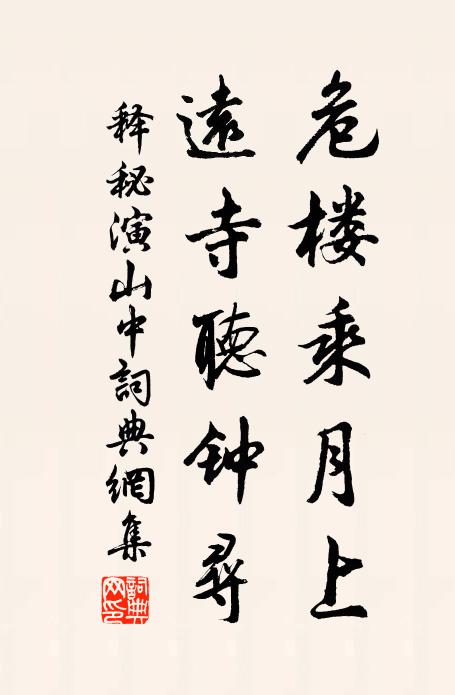 危楼乘月上
遠寺聽钟尋
释秘演山中詞典網集
詞典网印